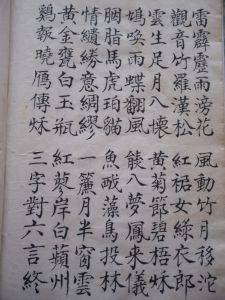 雷霹靂雨滂花 風動竹月移沱
觀音竹羅漢松 紅裙女綠衣郎
雲生足月入懷 黃菊節碧梧秋
鳩喚雨蝶翻風 熊入夢鳳來儀
胭脂馬虎珀貓 魚戯藻鳥投林
情繾綣意綢繆 一簾月半窗雲
黃金甕白玉瓶 紅蓼岸白蘋州
鷄報曉鴈傳秋 三字對六言終